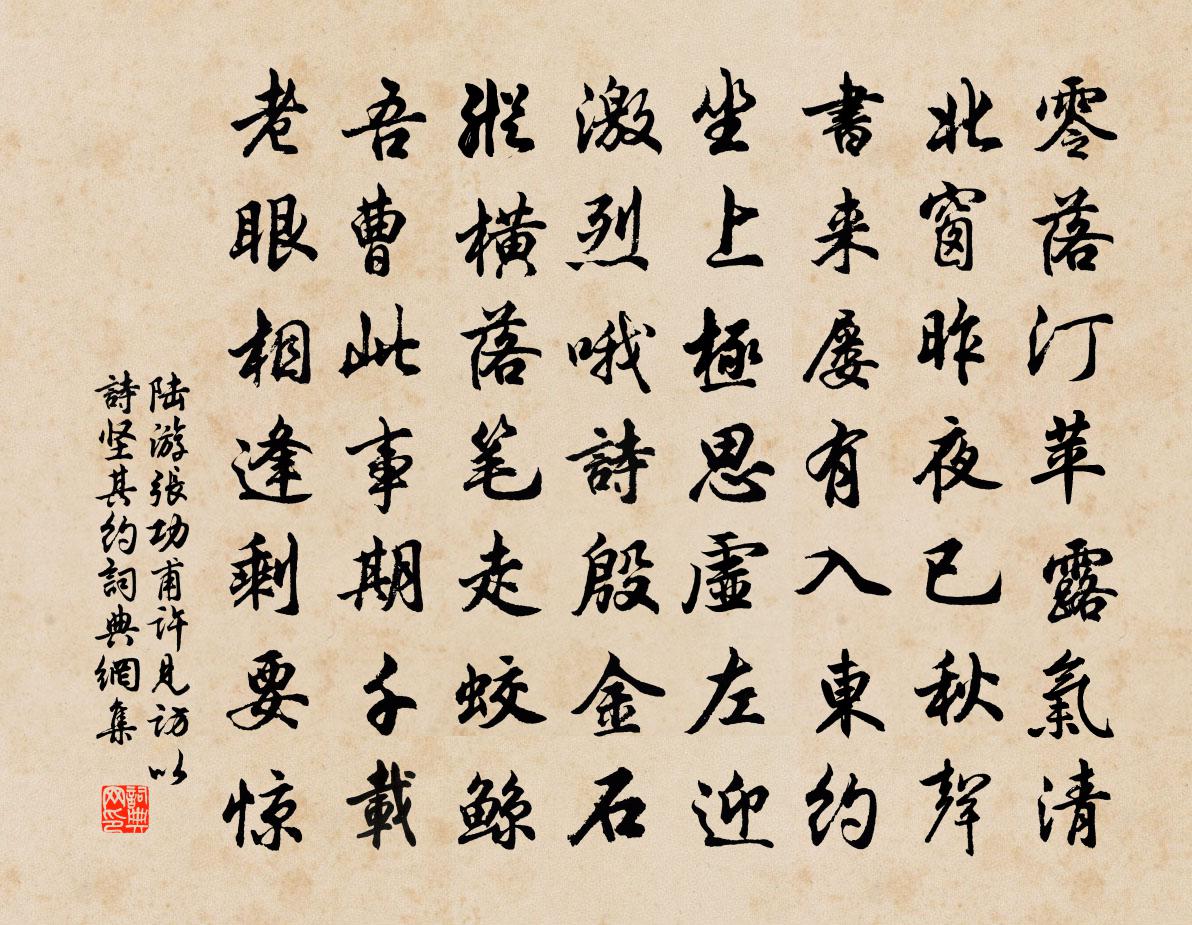 零落汀苹露氣清
北窗昨夜已秋聲
書来屡有入東約
坐上極思虛左迎
激烈哦詩殷金石
縱橫落笔走蛟鲸
吾曹此事期千載
老眼相逢剩要惊
陆游張功甫許見訪以
詩坚其約詞典網集
詞典网印